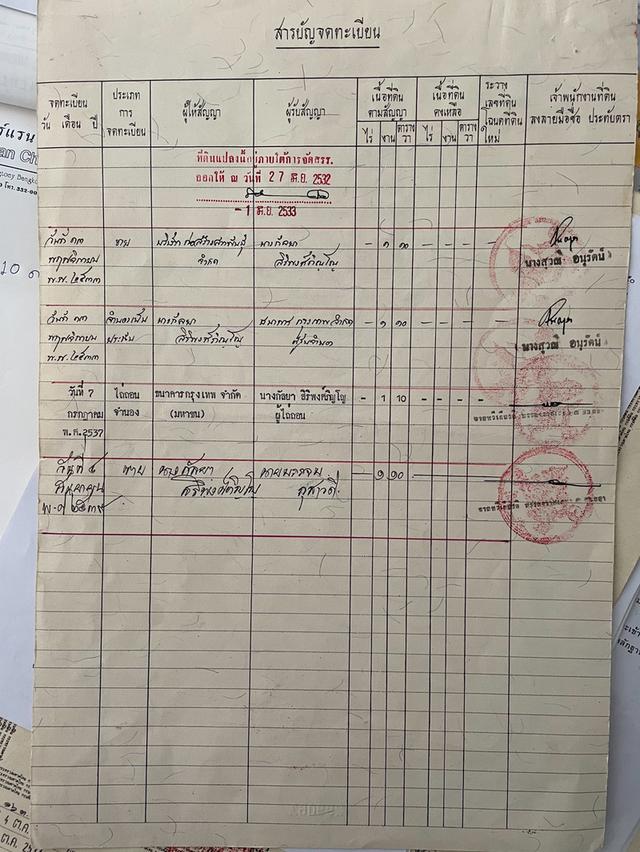 สารบัญจดทะเบียน
จดทะเบียน วัน เดือน ปี
ประเภทการจดทะเบียน
ผู้ให้สัญญา
ผู้รับสัญญา
เนื้อที่ดินตามสัญญา
เนื้อที่ดินคงเหลือ
ระวาง เลขที่ดิน โฉนดที่ดินใหม่
เจ้าพนักงานที่ดิน ลงลายมือชื่อ ประทับตรา
ไร่ งาน ตารางวา ไร่ งาน ตารางวา
ที่ดินแปลงนี้อยู่ภายใต้การจัดสรร.
ออกให้ ณ วันที่ 27 มิ.ย. 2532
- 1 มิ.ย. 2533
วันที่ ๑๓ ขาย บริษัท นางกัลยา - ๑ ๑๐ - - - -
พฤศจิกายน จำกัด สิริพงศ์ภิญโญ
พ.ศ. ๒๕๓๓
นางสุวณี อนุรัตน์
วันที่ ๑๓ จำนองเป็น นางกัลยา ธนาคาร กรุงเทพ จำกัด - ๑ ๑๐ - - - -
พฤศจิกายน ประกัน สิริพงศ์ภิญโญ ผู้รับจำนอง
พ.ศ. ๒๕๓๓
นางสุวณี อนุรัตน์
วันที่ 7 ไถ่ถอน ธนาคารกรุงเทพ จำกัด นางกัลยา สิริพงศ์ภิญโญ - 1 10 - - - -
กรกฎาคม จำนอง (มหาชน) ผู้ไถ่ถอน
พ.ศ.2537
วันที่ ๘ ขาย นางกัลยา - ๑ ๑๐ -
สิริพงศ์ภิญโญ